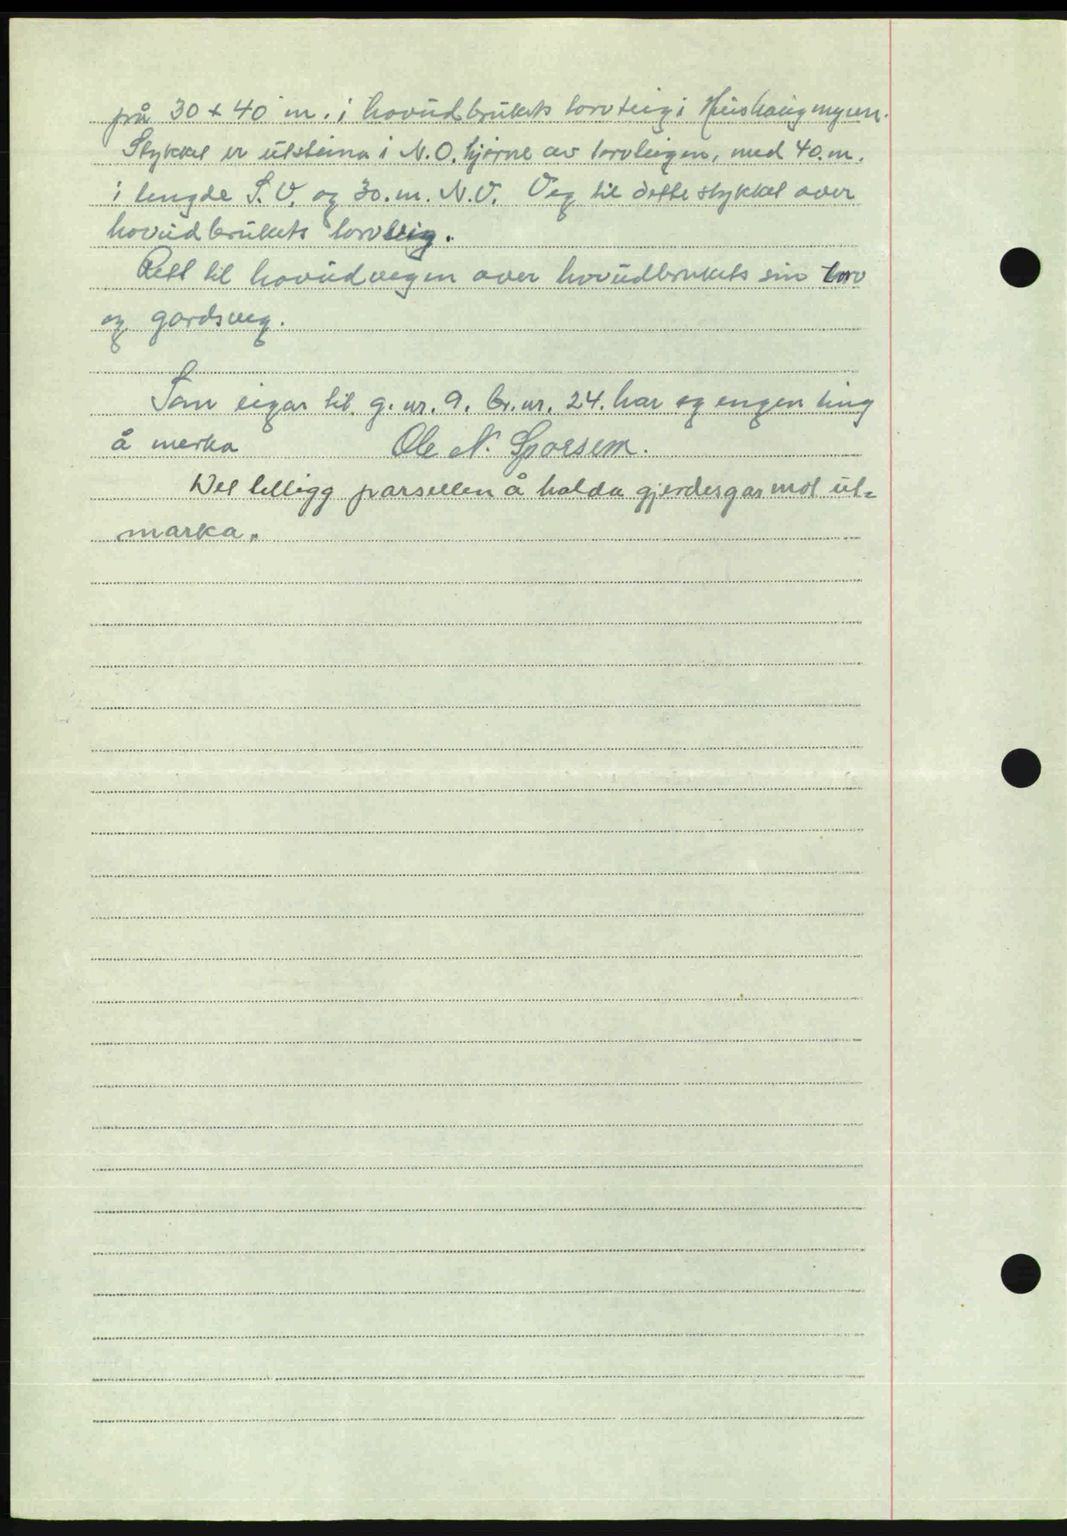 på 30 + 40 m. i hovudbrukets torvteig i Huishaugmyren.
Stykket er utsteina i N.O. hjørne av torvteigen, med 40.m.
i lengde S.V. og 30.m. N.V. Veg til dette stykket over
hovudbrukets torvteig.
Rett til hovudvegen over hovudbrukets sin torv
og gardsveg.
Som eigar til g.nr. 9. br.nr. 24. har eg engen ting
å merka Ole N.
Det tilligg parsellen å halda gjerdesgar mot ut-
marka.